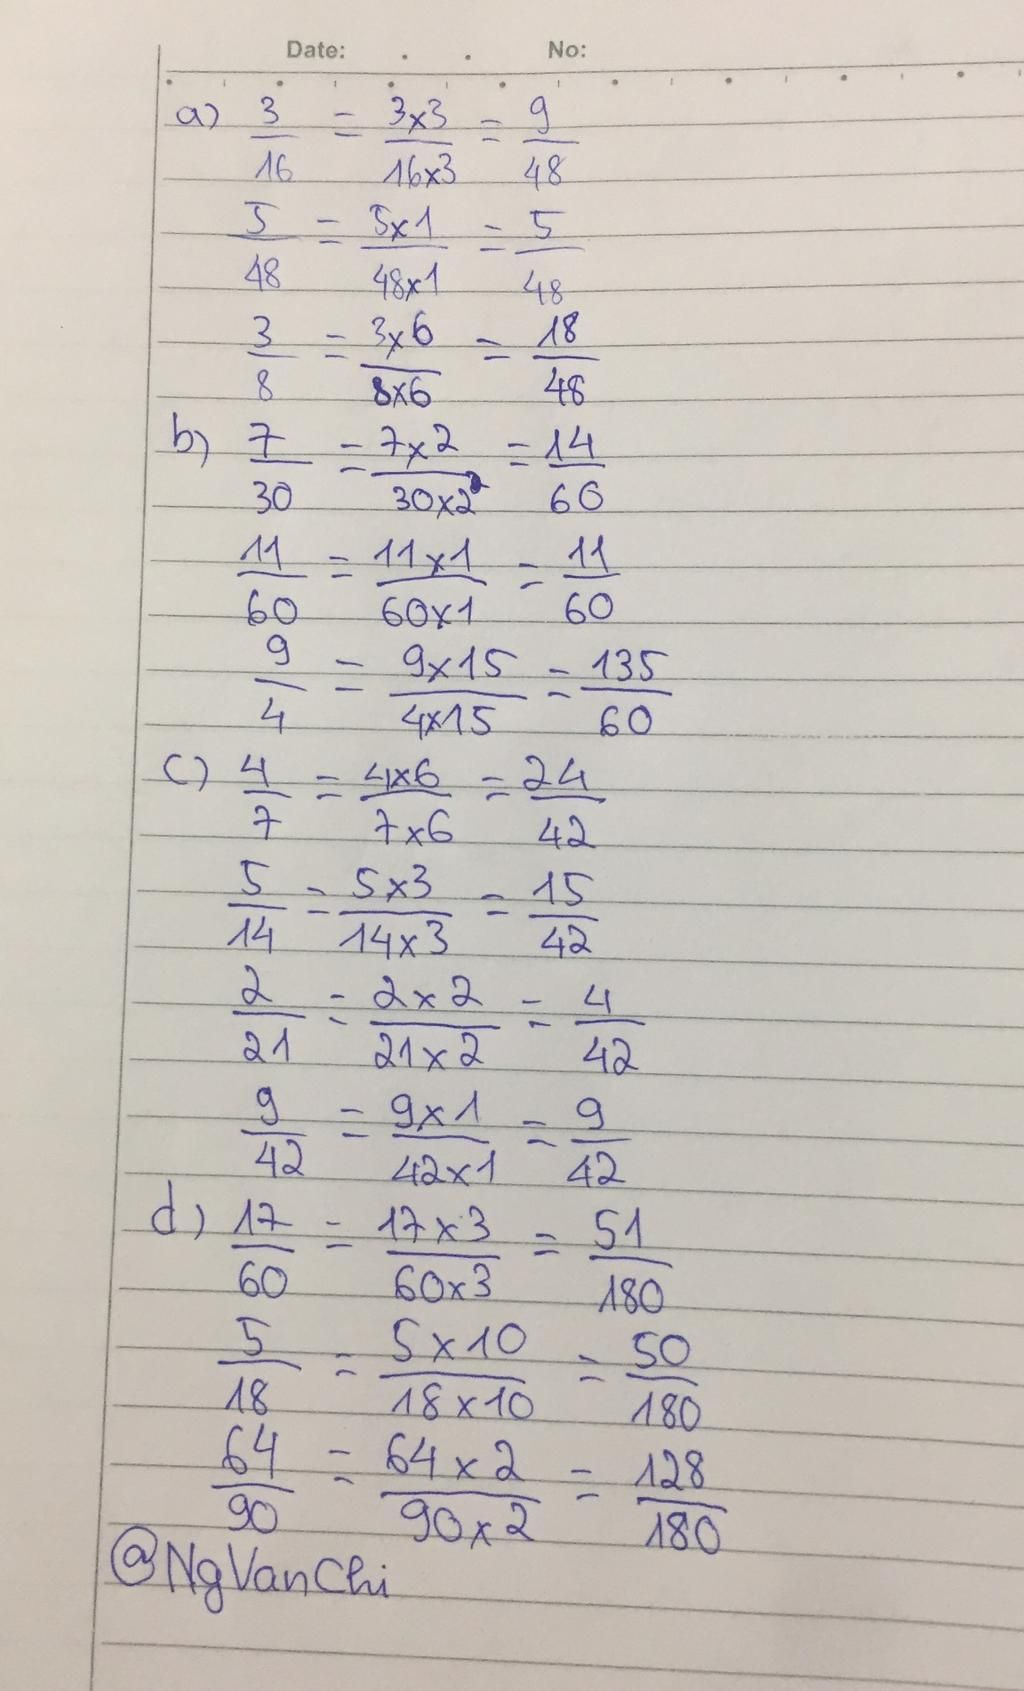 Date: . . No:
a) 3/16 = 3x3/16x3 = 9/48
5/48 = 5x1/48x1 = 5/48
3/8 = 3x6/8x6 = 18/48
b) 7/30 = 7x2/30x2 = 14/60
11/60 = 11x1/60x1 = 11/60
9/4 = 9x15/4x15 = 135/60
c) 4/7 = 4x6/7x6 = 24/42
5/14 = 5x3/14x3 = 15/42
2/21 = 2x2/21x2 = 4/42
9/42 = 9x1/42x1 = 9/42
d) 17/60 = 17x3/60x3 = 51/180
5/18 = 5x10/18x10 = 50/180
64/90 = 64x2/90x2 = 128/180
@NgVanChi